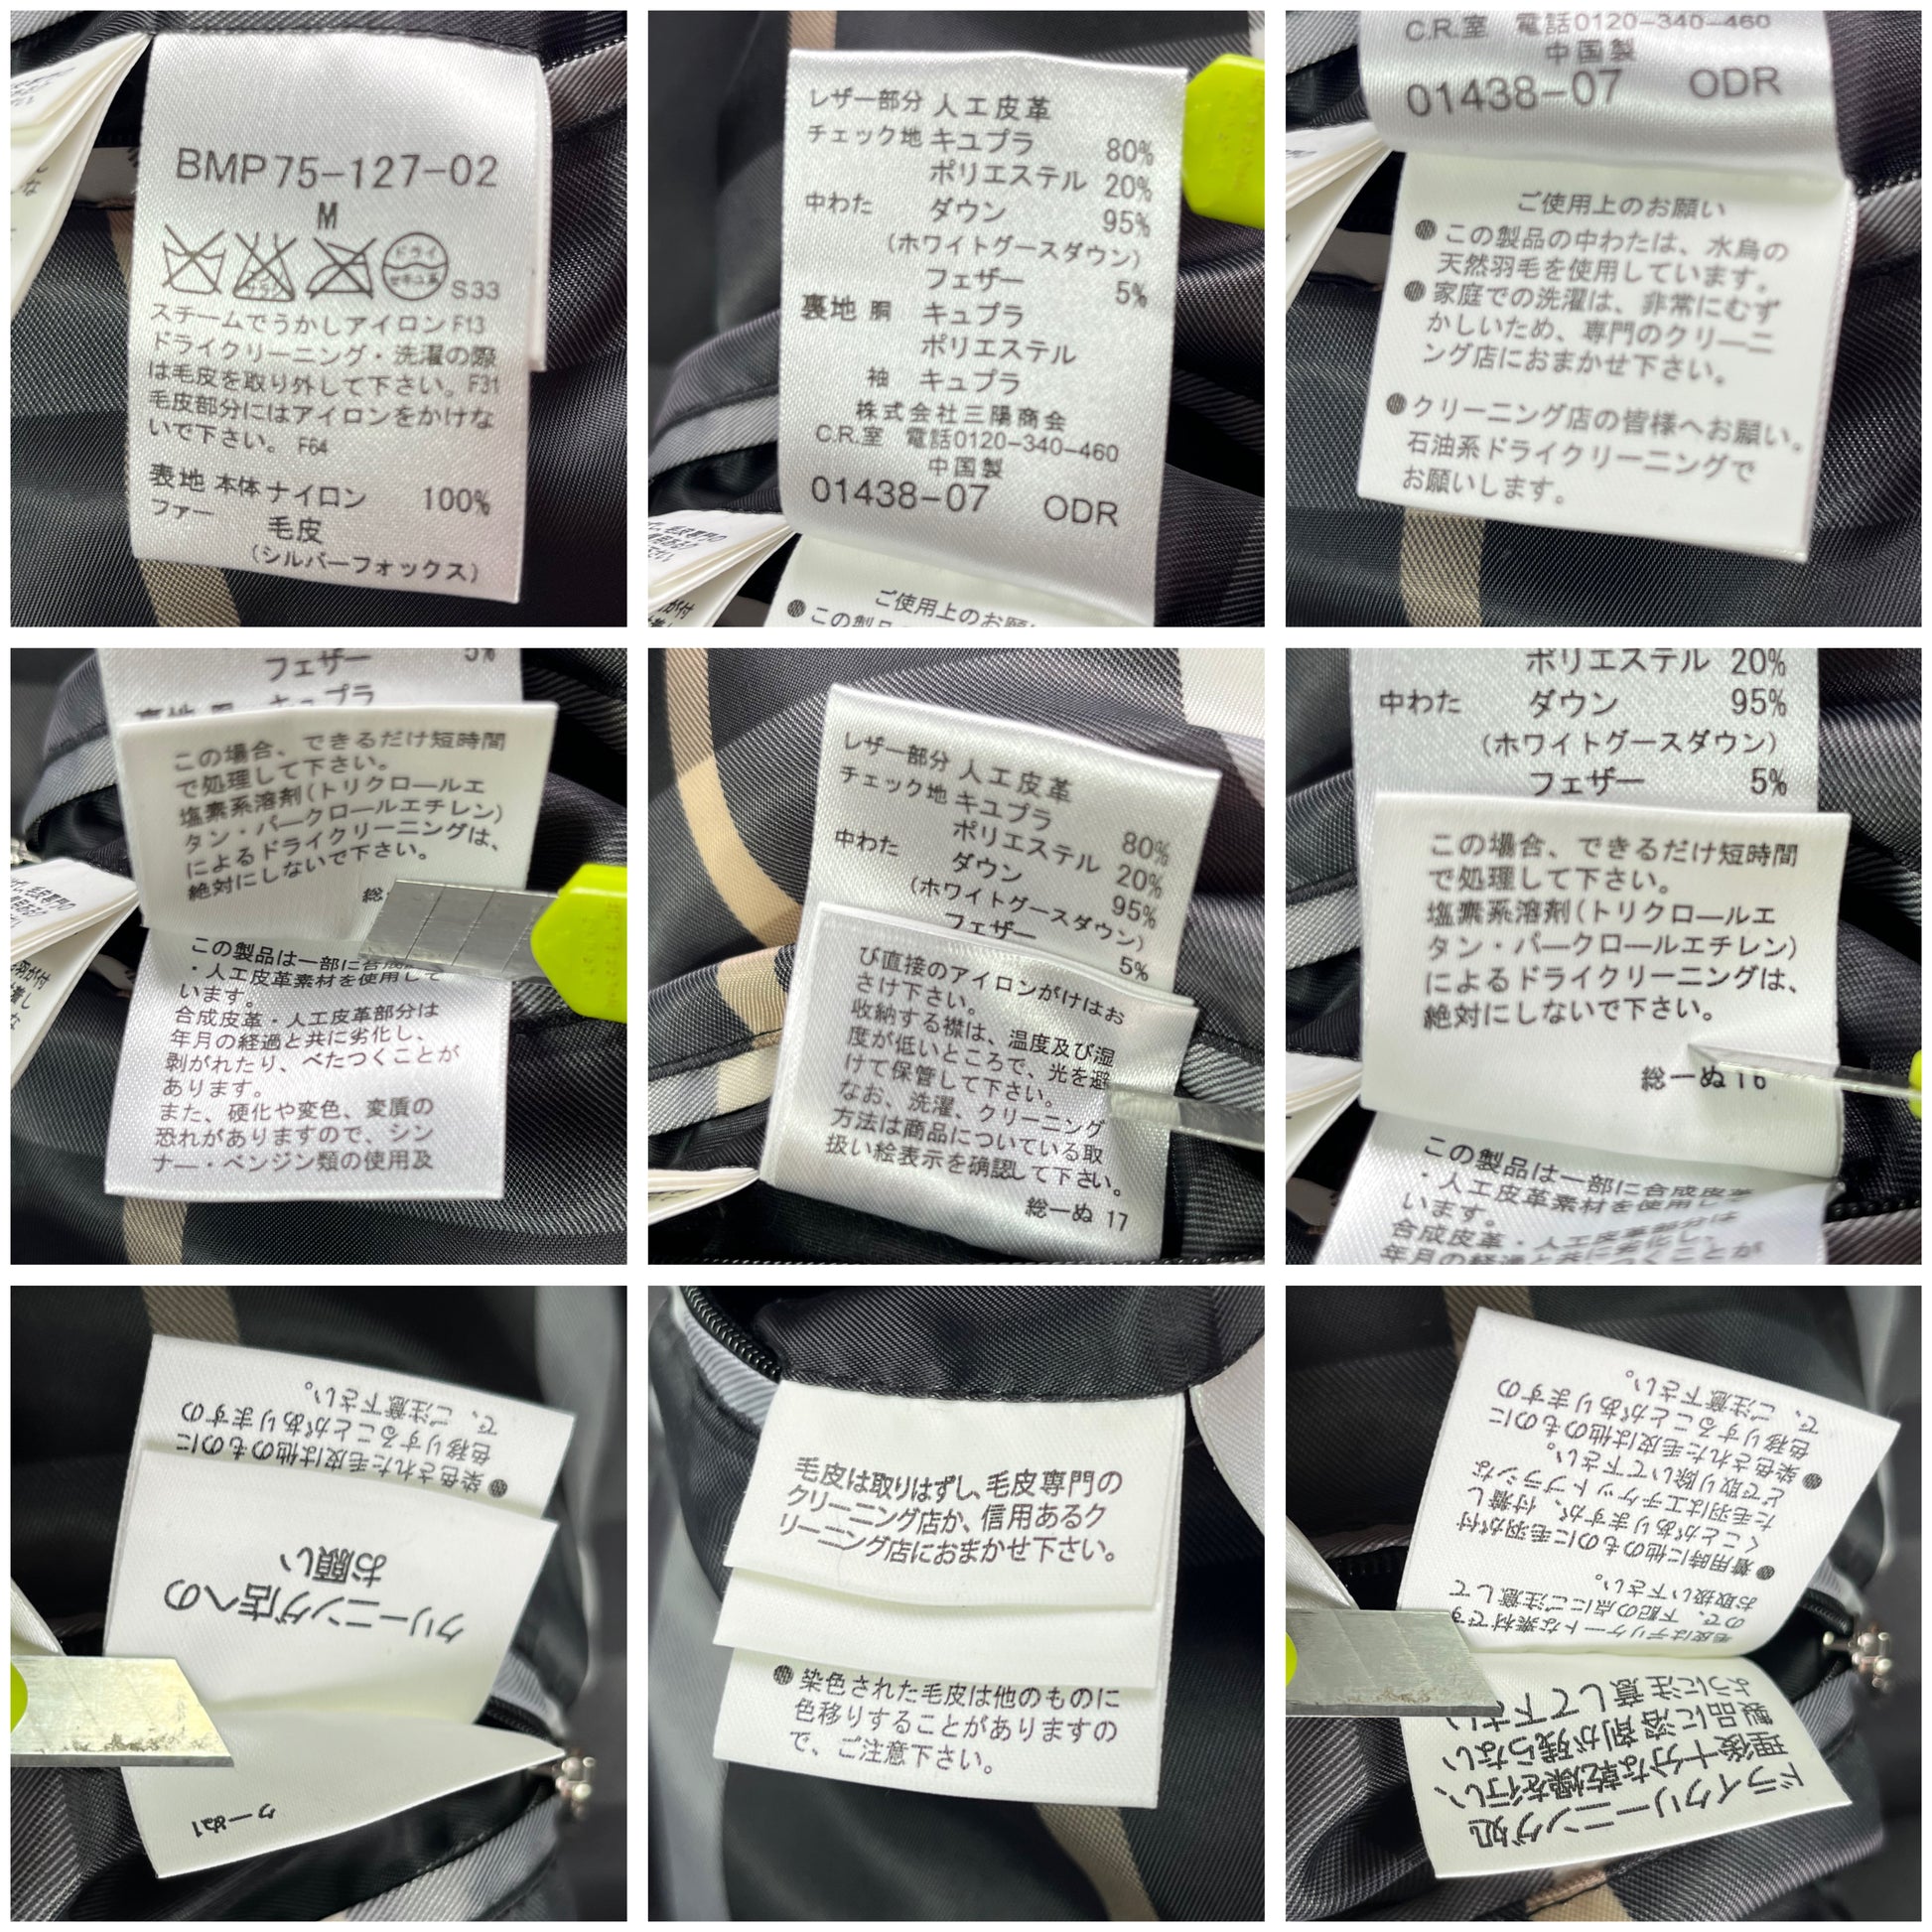 BMP75-127-02
M
ドライ
セキユ系
S33
スチームでうかしアイロンF13
ドライクリーニング・洗濯の際
は毛皮を取り外して下さい。F31
毛皮部分にはアイロンをかけな
いで下さい。F64
表地 本体 ナイロン 100%
ファー 毛皮
(シルバーフォックス)
レザー部分 人工皮革
チェック地 キュプラ 80%
ポリエステル 20%
中わた ダウン 95%
(ホワイトグースダウン)
フェザー 5%
裏地 胴 キュプラ
ポリエステル
袖 キュプラ
株式会社三陽商会
C.R.室 電話0120-340-460
中国製
01438-07 ODR
ご使用上のお願い
●この製品
C.R.室 電話0120-340-460
中国製
01438-07 ODR
ご使用上のお願い
●この製品の中わたは、水鳥の
天然羽毛を使用しています。
●家庭での洗濯は、非常にむず
かしいため、専門のクリーニ
ング店におまかせ下さい。
●クリーニング店の皆様へお願い。
石油系ドライクリーニングで
お願いします。
フェザー 5%
裏地 胴 キュプラ
この場合、できるだけ短時間
で処理して下さい。
塩素系溶剤(トリクロールエ
タン・パークロールエチレン)
によるドライクリーニングは、
絶対にしないで下さい。
総
この製品は一部に合成
・人工皮革素材を使用して
います。
合成皮革・人工皮革部分は
年月の経過と共に劣化し、
剥がれたり、べたつくことが
あります。
また、硬化や変色、変質の
恐れがありますので、シン
ナー・ベンジン類の使用及
レザー部分 人工皮革
チェック地 キュプラ 80%
ポリエステル 20%
中わた ダウン 95%
(ホワイトグースダウン)
フェザー 5%
び直接のアイロンがけはお
さけ下さい。
収納する襟は、温度及び湿
度が低いところで、光を避
けて保管して下さい。
なお、洗濯、クリーニング
方法は商品についている取
扱い絵表示を確認して下さい。
総一ぬ 17
ポリエステル 20%
中わた ダウン 95%
(ホワイトグースダウン)
フェザー 5%
この場合、できるだけ短時間
で処理して下さい。
塩素系溶剤(トリクロールエ
タン・パークロールエチレン)
によるドライクリーニングは、
絶対にしないで下さい。
総一ぬ 16
この製品は一部に合成皮革
・人工皮革素材を使用し
います。
合成皮革・人工皮革部分は
年月の経過と共に劣化し、
つくことが
クーぬ1
クリーニング店への
お願い
●染色された毛皮は他のものに
色移りすることがありますの
で、ご注意下さい。
毛皮は取りはずし、毛皮専門の
クリーニング店か、信用あるク
リーニング店におまかせ下さい。
●染色された毛皮は他のものに
色移りすることがありますの
で、ご注意下さい。
ドライクリーニング処
理後十分な乾燥を行い、
製品に溶剤が残らない
ように注意して下さい
毛皮はデリケートな素材です
ので、下記の点にご注意して
お取扱い下さい。
●着用時に他のものに毛羽が付
くことがありますが、付着し
た毛羽はエチケットブラシな
どで取り除いて下さい。
●染色された毛皮は他のものに
色移りすることがありますの
で、ご注意下さい。